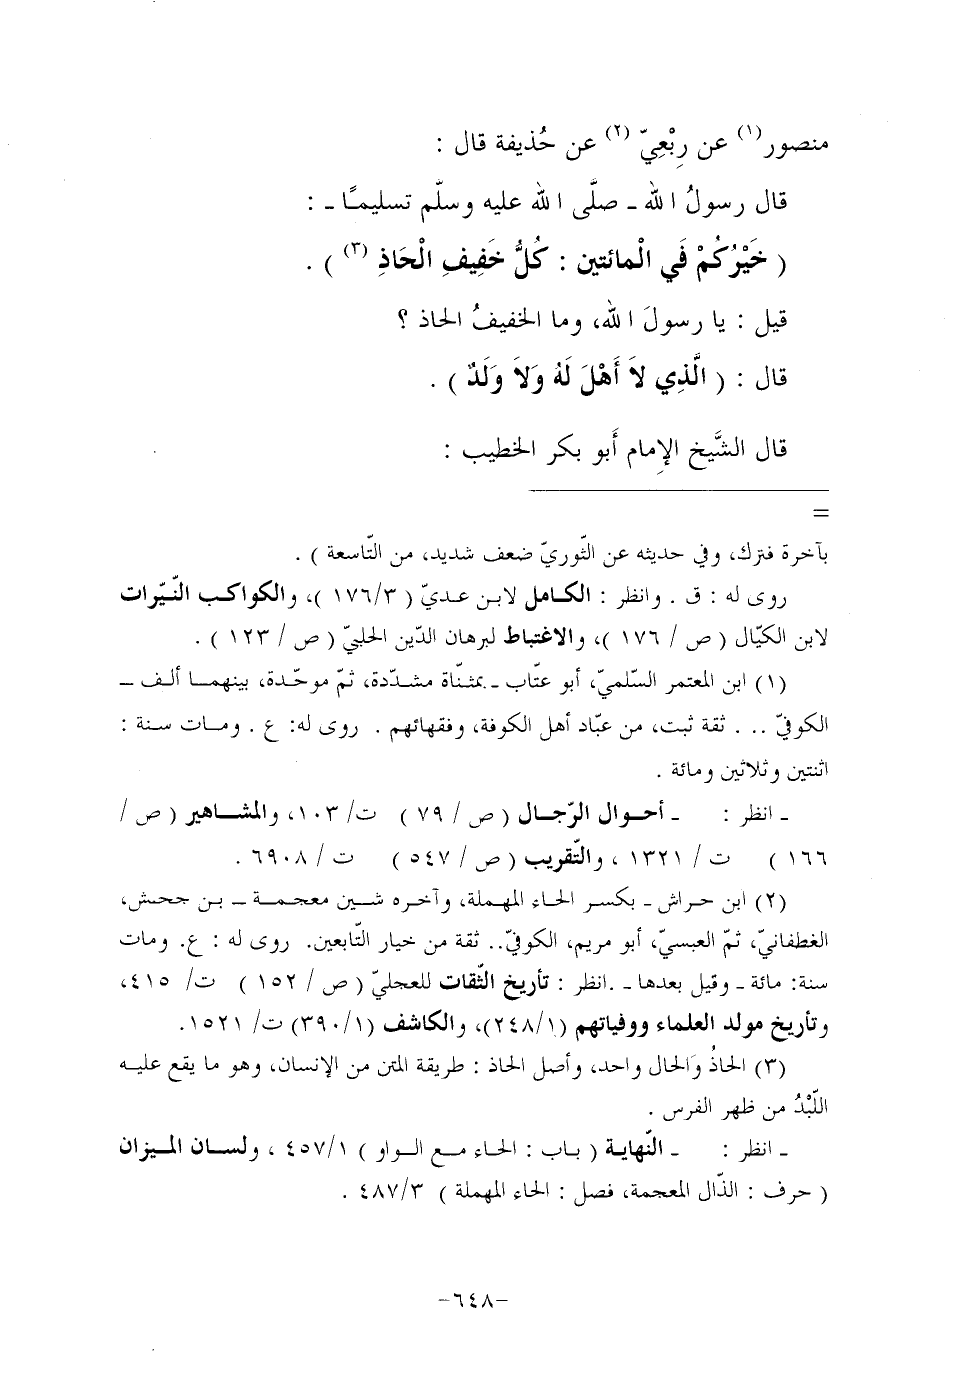 منصور(١) عن رِبْعِيّ (٢) عن حُذيفة قال :
قال رسولُ الله ـ صلّى الله عليه وسلّم تسليمًا ـ :
( خَيْرُكُمْ فَي الْمائتين : كُلُّ خَفِيفِ الْحَاذِ (٣) ) .
قيل : يا رسولَ الله، وما الخفيفُ الحاذ ؟
قال : ( الَّذِي لاَ أَهْلَ لَهُ وَلاَ وَلَدٌ ) .
قال الشَّيخ الإِمام أَبو بكر الخطيب :
=
بآخرة فترك، وفي حديثه عن الثّوريّ ضعف شديد، من التّاسعة ) .
روى له : ق . وانظر : الكامل لابن عديّ ( ١٧٦/٣ )، والكواكب النّيّرات
لابن الكيّال ( ص / ١٧٦ )، والاغتباط لبرهان الدّين الحلبيّ ( ص / ١٢٣ ) .
(١) ابن المعتمر السّلميّ، أبو عتّاب ـ بمثنّاة مشدّدة، ثمّ موحّدة، بينهما ألف ـ
الكوفيّ .. . ثقة ثبت، من عبّاد أهل الكوفة، وفقهائهم . روى له: ع . ومات سنة :
اثنتين وثلاثين ومائة .
ـ انظر : ـ أحوال الرّجال ( ص / ٧٩ ) ت/ ١٠٣، والمشاهير ( ص /
١٦٦ ) ت / ١٣٢١ ، والتّقريب ( ص / ٥٤٧ ) ت / ٦٩٠٨ .
(٢) ابن حراش ـ بكسر الحاء المهملة، وآخره شين معجمة ـ بن جحش،
الغطفانيّ، ثمّ العبسيّ، أبو مريم، الكوفيّ.. ثقة من خيار التّابعين. روى له : ع. ومات
سنة: مائة ـ وقيل بعدها ـ .انظر : تأريخ الثّقات للعجليّ ( ص / ١٥٢ ) ت/ ٤١٥،
وتأريخ مولد العلماء ووفياتهم (٢٤٨/١)، والكاشف (٣٩٠/١) ت/ ١٥٢١.
(٣) الحاذُ وَالحال واحد، وأصل الحاذ : طريقة المتن من الإنسان، وهو ما يقع عليه
اللّبْدُ من ظهر الفرس .
ـ انظر : ـ النّهاية ( باب : الحاء مع الواو ) ٤٥٧/١ ، ولسان الميزان
( حرف : الذّال المعجمة، فصل : الحاء المهملة ) ٤٨٧/٣ .
-٦٤٨-